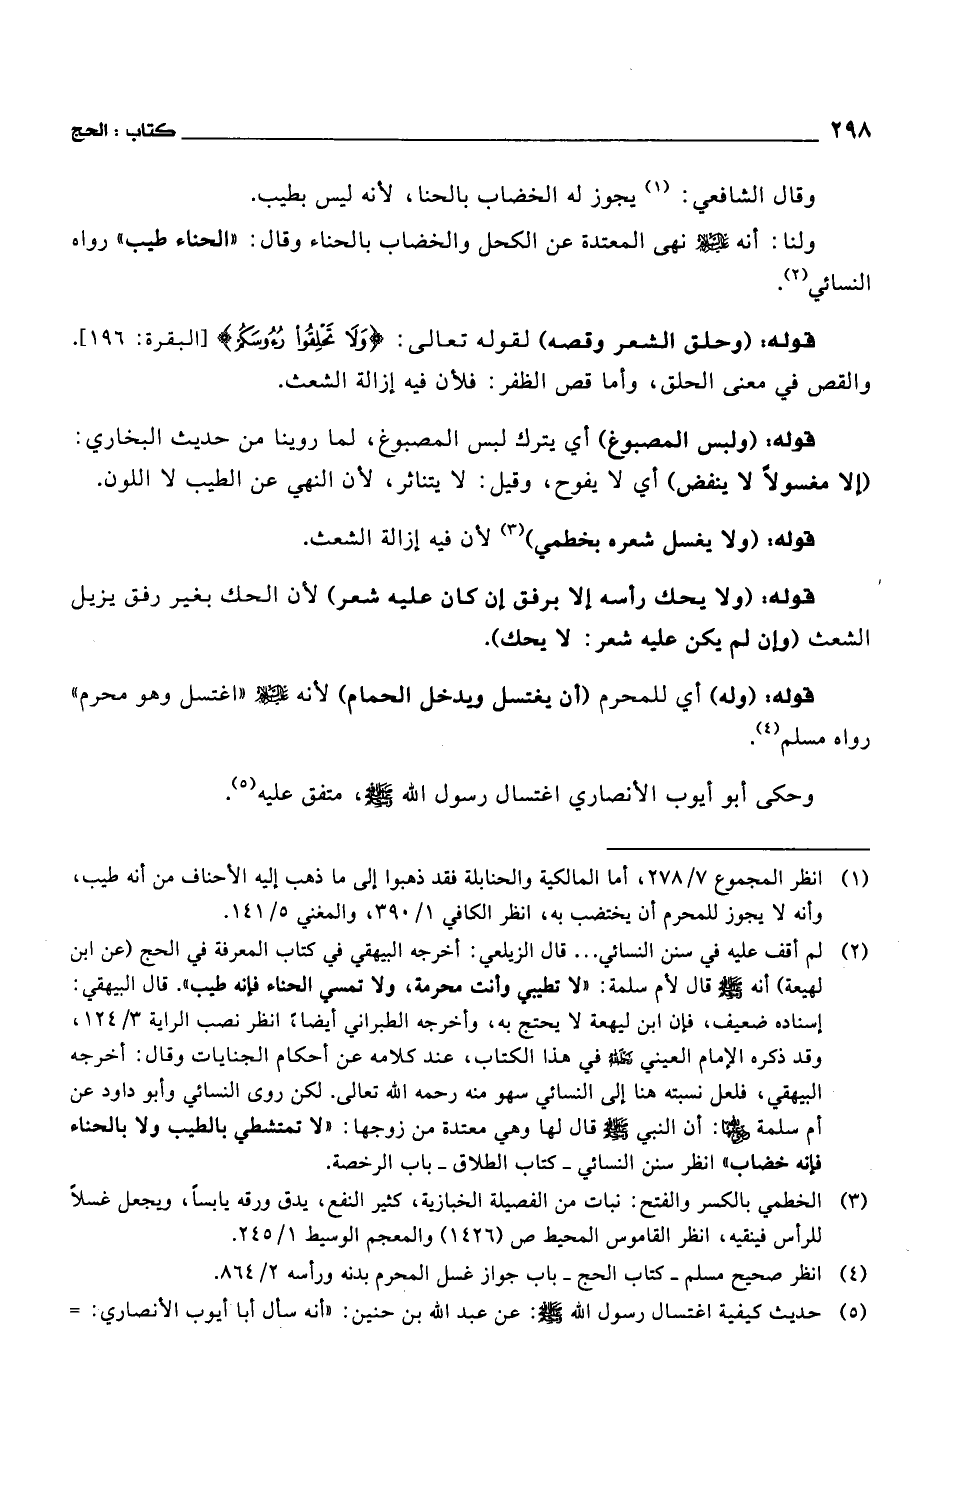 ٢٩٨ كتاب : الحج
وقال الشافعي: (١) يجوز له الخضاب بالحنا، لأنه ليس بطيب.
ولنا: أنه ﷺ نهى المعتدة عن الكحل والخضاب بالحناء وقال: «الحناء طيب» رواه
النسائي(٢).
قوله: (وحلق الشعر وقصه) لقوله تعالى: ﴿وَلَا تَحْلِقُوا۟ رُءُوسَكُمْ﴾ [البقرة: ١٩٦].
والقص في معنى الحلق، وأما قص الظفر: فلأن فيه إزالة الشعث.
قوله: (ولبس المصبوغ) أي يترك لبس المصبوغ، لما روينا من حديث البخاري:
(إلا مغسولاً لا ينفض) أي لا يفوح، وقيل: لا يتناثر، لأن النهي عن الطيب لا اللون.
قوله: (ولا يغسل شعره بخطمي)(٣) لأن فيه إزالة الشعث.
قوله: (ولا يحك رأسه إلا برفق إن كان عليه شعر) لأن الحك بغير رفق يزيل
الشعث (وإن لم يكن عليه شعر: لا يحك).
قوله: (وله) أي للمحرم (أن يغتسل ويدخل الحمام) لأنه ﷺ «اغتسل وهو محرم»
رواه مسلم(٤).
وحكى أبو أيوب الأنصاري اغتسال رسول الله ﷺ، متفق عليه(٥).
(١) انظر المجموع ٢٧٨/٧، أما المالكية والحنابلة فقد ذهبوا إلى ما ذهب إليه الأحناف من أنه طيب،
وأنه لا يجوز للمحرم أن يختضب به، انظر الكافي ٣٩٠/١، والمغني ١٤١/٥.
(٢) لم أقف عليه في سنن النسائي... قال الزيلعي: أخرجه البيهقي في كتاب المعرفة في الحج (عن ابن
لهيعة) أنه ﷺ قال لأم سلمة: «لا تطيبي وأنت محرمة، ولا تمسي الحناء فإنه طيب». قال البيهقي:
إسناده ضعيف، فإن ابن ليهعة لا يحتج به، وأخرجه الطبراني أيضاً؛ انظر نصب الراية ١٢٤/٣،
وقد ذكره الإمام العيني رحمه الله في هذا الكتاب، عند كلامه عن أحكام الجنايات وقال: أخرجه
البيهقي، فلعل نسبته هنا إلى النسائي سهو منه رحمه الله تعالى. لكن روى النسائي وأبو داود عن
أم سلمة رضي الله عنها: أن النبي ﷺ قال لها وهي معتدة من زوجها: «لا تمتشطي بالطيب ولا بالحناء
فإنه خضاب» انظر سنن النسائي ـ كتاب الطلاق ـ باب الرخصة.
(٣) الخطمي بالكسر والفتح: نبات من الفصيلة الخبازية، كثير النفع، يدق ورقه يابساً، ويجعل غسلاً
للرأس فينقيه، انظر القاموس المحيط ص (١٤٢٦) والمعجم الوسيط ٢٤٥/١.
(٤) انظر صحيح مسلم ـ كتاب الحج ـ باب جواز غسل المحرم بدنه ورأسه ٨٦٤/٢.
(٥) حديث كيفية اغتسال رسول الله ﷺ: عن عبد الله بن حنين: «أنه سأل أبا أيوب الأنصاري: =